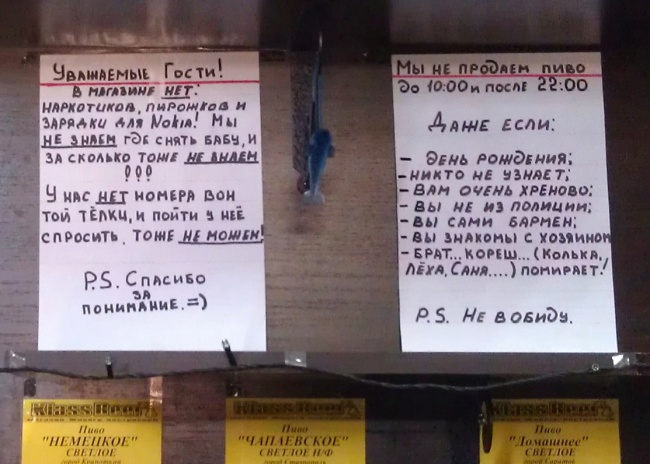 Уважаемые Гости!
В магазине НЕТ:
наркотиков, пирожков и
зарядки для Nokia! Мы
не знаем где снять бабу, и
за сколько тоже не знаем
!!!
У нас нет номера вон
той тёлки, и пойти у неё
спросить, тоже не можем!
P.S. Спасибо
за
понимание. =)
Мы не продаем пиво
до 10:00 и после 22:00
Даже если:
- День рождения;
- никто не узнает;
- вам очень хреново;
- вы не из полиции;
- вы сами бармен;
- вы знакомы с хозяином
- брат... кореш... (Колька,
Лёха, Саня....) помирает!
P.S. Не в обиду.
Klass Beer
Пиво
"НЕМЕЦКОЕ"
СВЕТЛОЕ
Klass Beer
Пиво
"ЧАПАЕВСКОЕ"
СВЕТЛОЕ Н/Ф
Klass Beer
Пиво
"Домашнее"
СВЕТЛОЕ
город Саратов